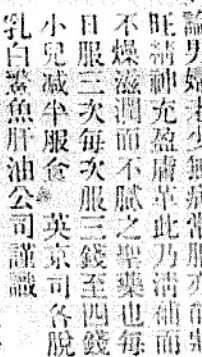 論男婦老少無病常服亦能
旺精神充盈膚革此乃清補而
不燥滋潤而不膩之聖藥也每
日服三次每次服三錢至四錢
小兒減半服食 英京司各脫
乳白鰵魚肝油公司謹識